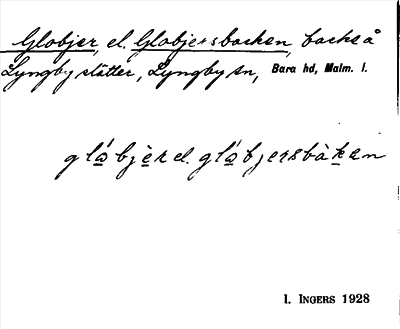 Globjer, el. Globjersbacken, backe å
Lyngby slätter, Lyngby sn, Bara hd, Malm. l.
glábjèr el. glábjersbàken
I. INGERS 1928